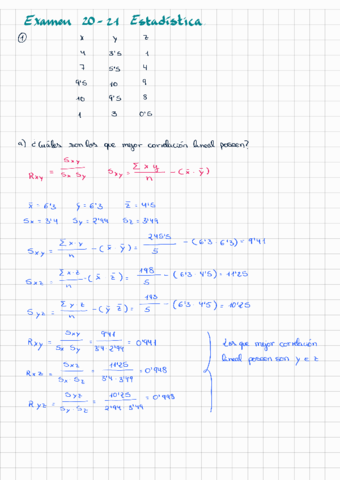 Examen 20-21 Estadística
① x y z
4 3'5 1
7 5'5 4
9'5 10 9
10 9'5 8
1 3 0'5
a) ¿Cuáles son los que mejor correlación lineal poseen?
Rxy = Sxy / Sx Sy   Sxy = Σ x y / n - (x̄ · ȳ)
x̄ = 6'3   ȳ = 6'3   z̄ = 4'5
Sx = 3'4   Sy = 2'94   Sz = 3'49
Sxy = Σ x·y / n - (x̄ ȳ) = 245'5 / 5 - (6'3 6'3) = 9'41
Sxz = Σ x·z / n - (x̄ z̄) = 198 / 5 - (6'3 4'5) = 11'25
Syz = Σ y z / n - (ȳ z̄) = 193 / 5 - (6'3 4'5) = 10'25
Rxy = Sxy / Sx Sy = 9'41 / 3'4·2'94 = 0'941
Rxz = Sxz / Sx Sz = 11'25 / 3'4·3'49 = 0'948
Ryz = Syz / Sy·Sz = 10'25 / 2'94·3'49 = 0'998
Los que mejor correlación
lineal poseen son y e z